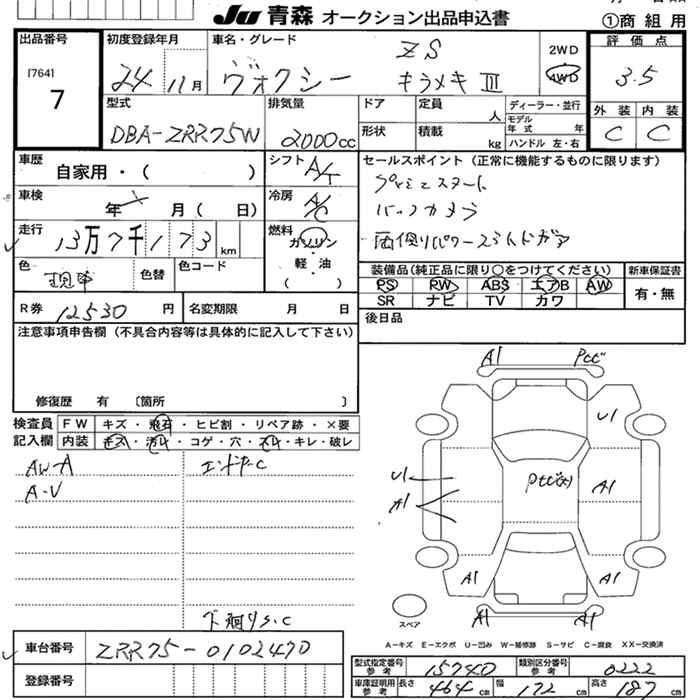 JU 青森 オークション出品申込書
①商 組 用
出品番号
[764]
7
初度登録年月
24 11月
車名・グレード
ヴォクシー
ZS
キラメキ Ⅲ
2WD
4WD
評 価 点
3.5
外 装 内 装
C C
型式
DBA-ZRR75W
排気量
2000cc
ドア
定員
人
形状
積載
kg
ディーラー・並行
モデル
年 式 年
ハンドル 左・右
車歴
自家用・( )
シフト
A/T
車検
年 月 ( 日)
冷房
A/C
走行
13万7千173 km
燃料
ガソリン
軽・油
( )
色
色替
色コード
R券 12530 円
名変期限 月 日
セールスポイント (正常に機能するものに限ります)
バックカメラ
両側パワースライドドア
装備品(純正品に限り○をつけてください)
PS PW ABS エアB AW
SR ナビ TV カワ
新車保証書
有・無
後日品
注意事項申告欄 (不具合内容等は具体的に記入して下さい)
修復歴 有 〔箇所 〕
検査員
記入欄
FW キズ・飛石・ヒビ割・リペア跡・×要
内装 キズ・汚レ・コゲ・穴・スレ・キレ・破レ
AW-A
A-V
下廻りS.C
A1
U1
U1
A1
A1
A1
A1
A1
A1
スペア
A-キズ E-エクボ U-凹み W-補修跡 S-サビ C-腐食 XX-交換済
車台番号 ZRR75-0102470
登録番号
型式指定番号
参考
15740
類別区分番号
参考
0222
車庫証明用
参考
長さ 464 cm 幅 172 cm 高さ 187 cm